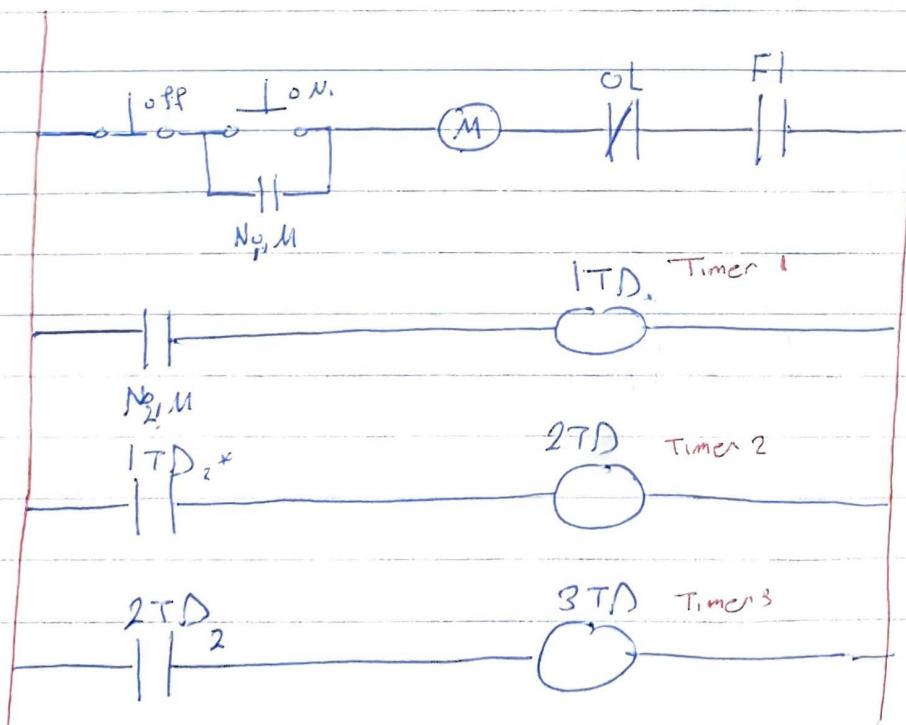 off ON. OL F1
M
No,1 M
1TD. Timer 1
No,2 M
1TD2* 2TD Timer 2
2TD2 3TD Timer 3